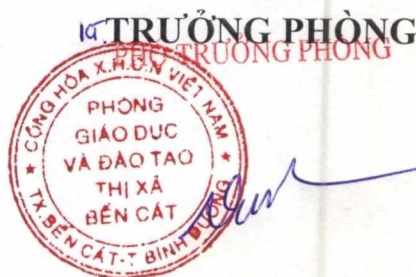 KT.TRƯỞNG PHÒNG
PHÓ TRƯỞNG PHÒNG
CỘNG HÒA X.H.C.N VIỆT NAM
PHÒNG
GIÁO DỤC
VÀ ĐÀO TẠO
THỊ XÃ
BẾN CÁT
TX.BẾN CÁT-T BÌNH DƯƠNG